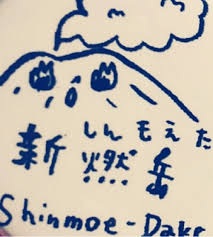 しんもえだ
新燃岳
Shinmoe-Dake